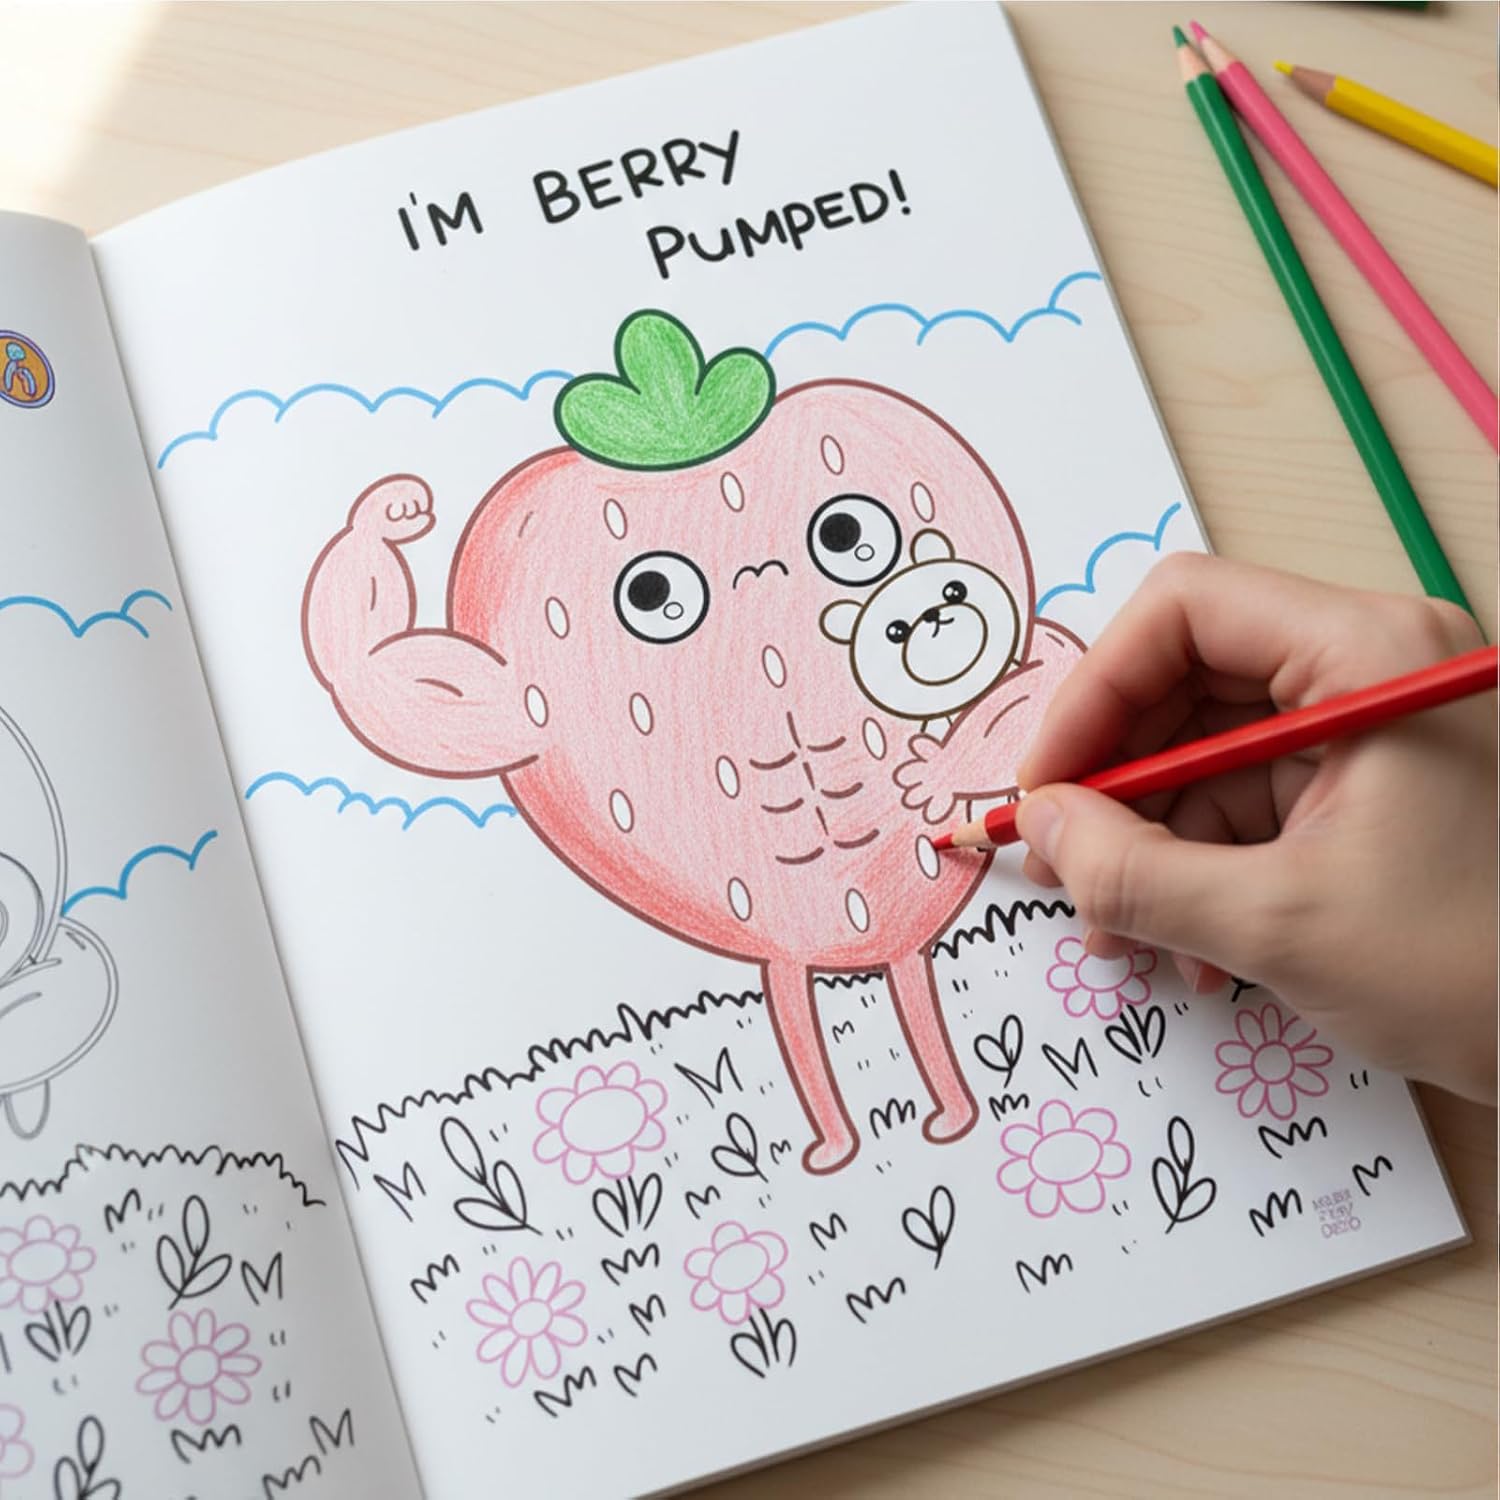 I'M BERRY
PUMPED!